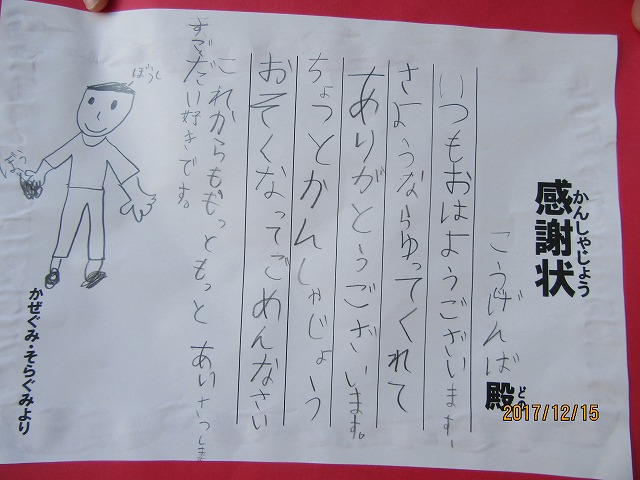 感謝状
かんしゃじょう
こうげんば殿
どの
いつもおはようございます、
さようならゆってくれて
ありがとうございます。
ちょっとかんしゃじょう
おそくなってごめんなさい
これからももっともっとあいさつしま
すだい好きです。
ぼうし
かぜぐみ・そらぐみより
2017/12/15